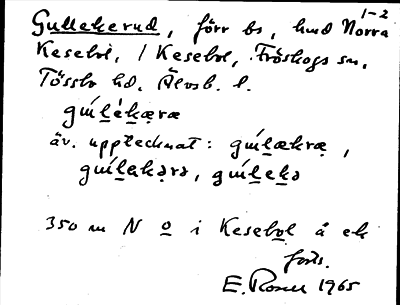 1-2
Gullekerud, förr bs, hmd Norra
Kesebol, / Kesebol, Fröskogs sn,
Tössbo hd. Älvsb. l.
gu̍l̲ék̲æ̣ræ
äv. upptecknat: gu̍l̲ækræ̣,
gu̍l̲ekə̣rə, gu̍l̲ek̲ə
350 m N o i Kesebol å ek
forts.
E. Rosell 1965